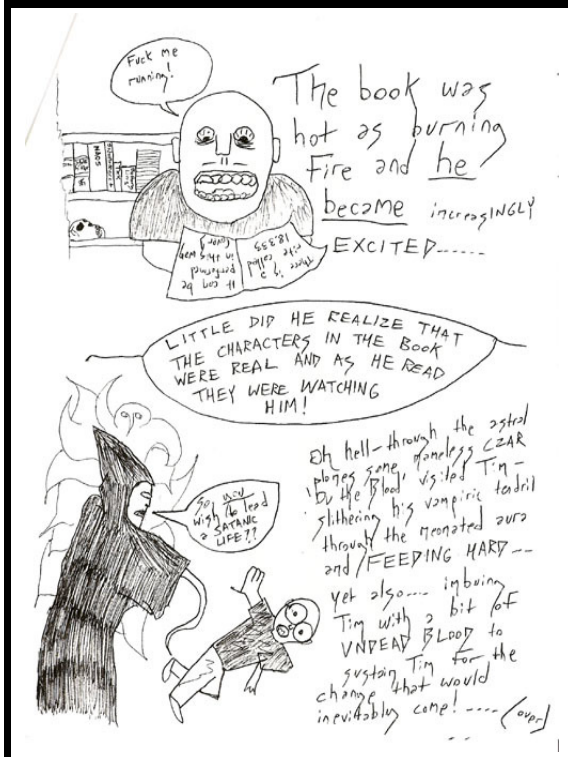 Fuck me
running!
The book was
hot as burning
Fire and he
became increasINGLY
EXCITED------
KAOS
There is a
rite called
18.335
It can be
performed
in this way
LITTLE DID HE REALIZE THAT
THE CHARACTERS IN THE BOOK
WERE REAL AND AS HE READ
THEY WERE WATCHING
HIM!
So, you
wish to lead
a SATANIC
LIFE??
Oh hell-through the astral
planes some nameless CZAR
'Du the Blood' visited Tim-
slithering his vampiric tendril
through the neonated aura
and FEEDING HARD--
yet also.... imbuing
Tim with a bit of
UNDEAD BLOOD to
sustain Tim for the
change that would
inevitably come! ---- (over)